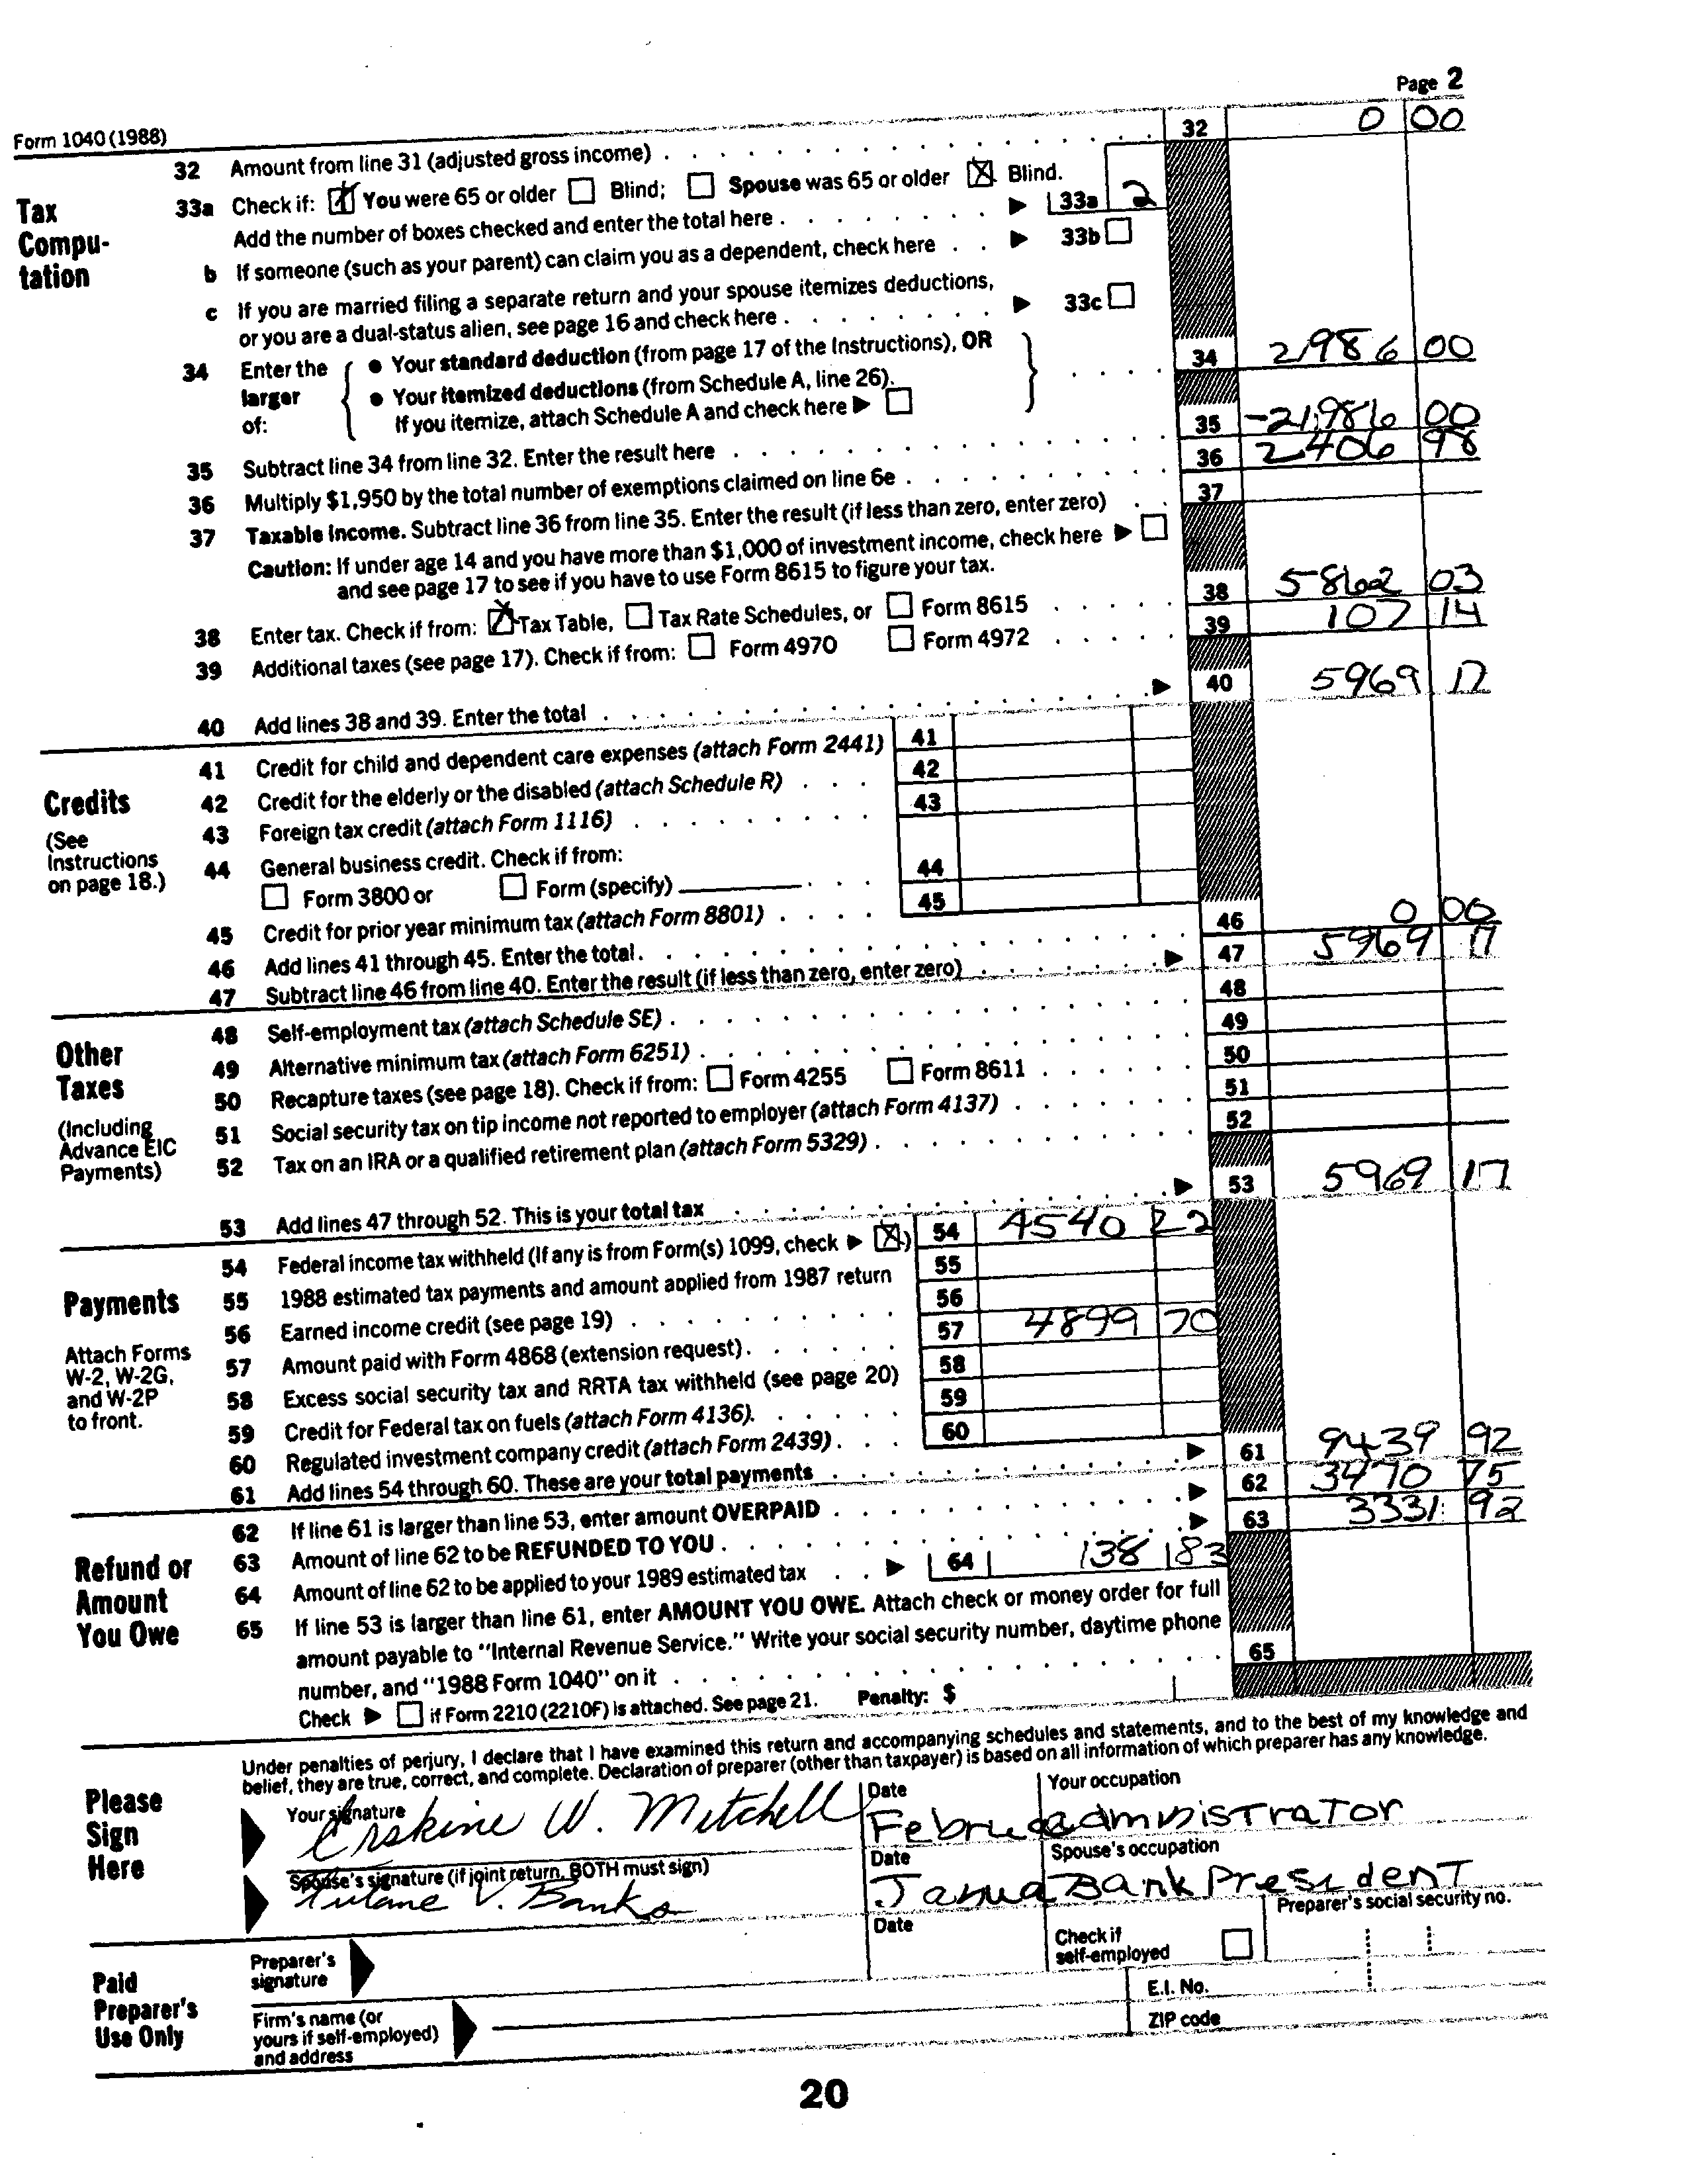 Page 2
Form 1040 (1988)
32 Amount from line 31 (adjusted gross income) 32 0 00
Tax Compu- tation
33a Check if: ☒ You were 65 or older ☐ Blind; ☐ Spouse was 65 or older ☒ Blind.
Add the number of boxes checked and enter the total here ▶ 33a 2
b If someone (such as your parent) can claim you as a dependent, check here ▶ 33b ☐
c If you are married filing a separate return and your spouse itemizes deductions,
or you are a dual-status alien, see page 16 and check here ▶ 33c ☐
34 Enter the larger of:
● Your standard deduction (from page 17 of the Instructions), OR
● Your itemized deductions (from Schedule A, line 26).
If you itemize, attach Schedule A and check here ▶ ☐
34 21986 00
35 Subtract line 34 from line 32. Enter the result here 35 -21986 00
36 Multiply $1,950 by the total number of exemptions claimed on line 6e 36 2406 98
37 Taxable income. Subtract line 36 from line 35. Enter the result (if less than zero, enter zero) 37
Caution: If under age 14 and you have more than $1,000 of investment income, check here ▶ ☐
and see page 17 to see if you have to use Form 8615 to figure your tax.
38 Enter tax. Check if from: ☒ Tax Table, ☐ Tax Rate Schedules, or ☐ Form 8615 38 5862 03
39 Additional taxes (see page 17). Check if from: ☐ Form 4970 ☐ Form 4972 39 107 14
40 Add lines 38 and 39. Enter the total ▶ 40 5969 17
Credits
(See Instructions on page 18.)
41 Credit for child and dependent care expenses (attach Form 2441) 41
42 Credit for the elderly or the disabled (attach Schedule R) 42
43 Foreign tax credit (attach Form 1116) 43
44 General business credit. Check if from:
☐ Form 3800 or ☐ Form (specify) 44
45 Credit for prior year minimum tax (attach Form 8801) 45
46 Add lines 41 through 45. Enter the total 46 0 00
47 Subtract line 46 from line 40. Enter the result (if less than zero, enter zero) ▶ 47 5969 17
Other Taxes
(Including Advance EIC Payments)
48 Self-employment tax (attach Schedule SE) 48
49 Alternative minimum tax (attach Form 6251) 49
50 Recapture taxes (see page 18). Check if from: ☐ Form 4255 ☐ Form 8611 50
51 Social security tax on tip income not reported to employer (attach Form 4137) 51
52 Tax on an IRA or a qualified retirement plan (attach Form 5329) 52
53 Add lines 47 through 52. This is your total tax ▶ 53 5969 17
Payments
Attach Forms W-2, W-2G, and W-2P to front.
54 Federal income tax withheld (If any is from Form(s) 1099, check ▶ ☒.) 54 4540 22
55 1988 estimated tax payments and amount applied from 1987 return 55
56 Earned income credit (see page 19) 56
57 Amount paid with Form 4868 (extension request) 57 4899 70
58 Excess social security tax and RRTA tax withheld (see page 20) 58
59 Credit for Federal tax on fuels (attach Form 4136). 59
60 Regulated investment company credit (attach Form 2439) 60
61 Add lines 54 through 60. These are your total payments ▶ 61 9439 92
Refund or Amount You Owe
62 If line 61 is larger than line 53, enter amount OVERPAID ▶ 62 3470 75
63 Amount of line 62 to be REFUNDED TO YOU ▶ 63 3331 92
64 Amount of line 62 to be applied to your 1989 estimated tax ▶ 64 138 83
65 If line 53 is larger than line 61, enter AMOUNT YOU OWE. Attach check or money order for full
amount payable to "Internal Revenue Service." Write your social security number, daytime phone
number, and "1988 Form 1040" on it 65
Check ▶ ☐ if Form 2210 (2210F) is attached. See page 21. Penalty: $
Please Sign Here
Under penalties of perjury, I declare that I have examined this return and accompanying schedules and statements, and to the best of my knowledge and
belief, they are true, correct, and complete. Declaration of preparer (other than taxpayer) is based on all information of which preparer has any knowledge.
Your signature Erskine W. Mitchell
Date Februa
Your occupation administrator
Spouse's signature (if joint return, BOTH must sign) Tulane V. Banks
Date Janua
Spouse's occupation Bank President
Paid Preparer's Use Only
Preparer's signature
Date
Check if self-employed ☐
Preparer's social security no.
Firm's name (or yours if self-employed) and address
E.I. No.
ZIP code
20